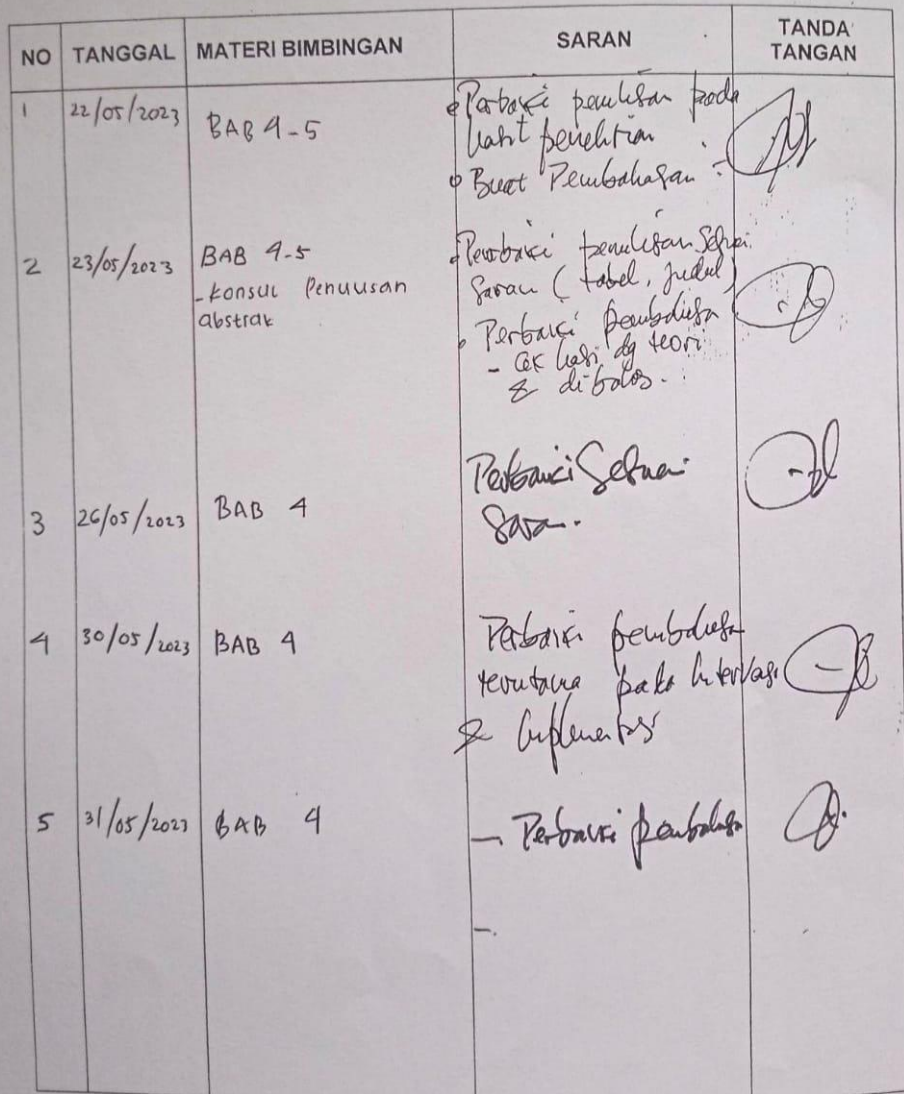 NO TANGGAL MATERI BIMBINGAN SARAN TANDA TANGAN
1 22/05/2023 BAB 4-5
Perbaiki penulisan pada
hasil penelitian
Buat Pembahasan
2 23/05/2023 BAB 4-5
-konsul Penulisan
abstrak
Perbaiki penulisan sesuai
saran (tabel, judul)
Perbaiki pembahasan
- cek hasil dg teori
& dibahas.
3 26/05/2023 BAB 4
Perbaiki Sesuai
Saran.
4 30/05/2023 BAB 4
Perbaiki pembahasan
terutama pada Intervensi
& Implementasi
5 31/05/2023 BAB 4
- Perbaiki pembahasan
-.